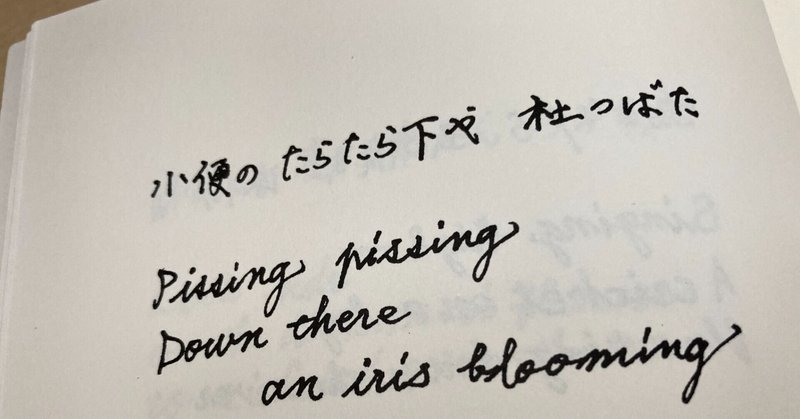 小便の たらたら下や 杜つばた
Pissing pissing
Down there
an iris blooming